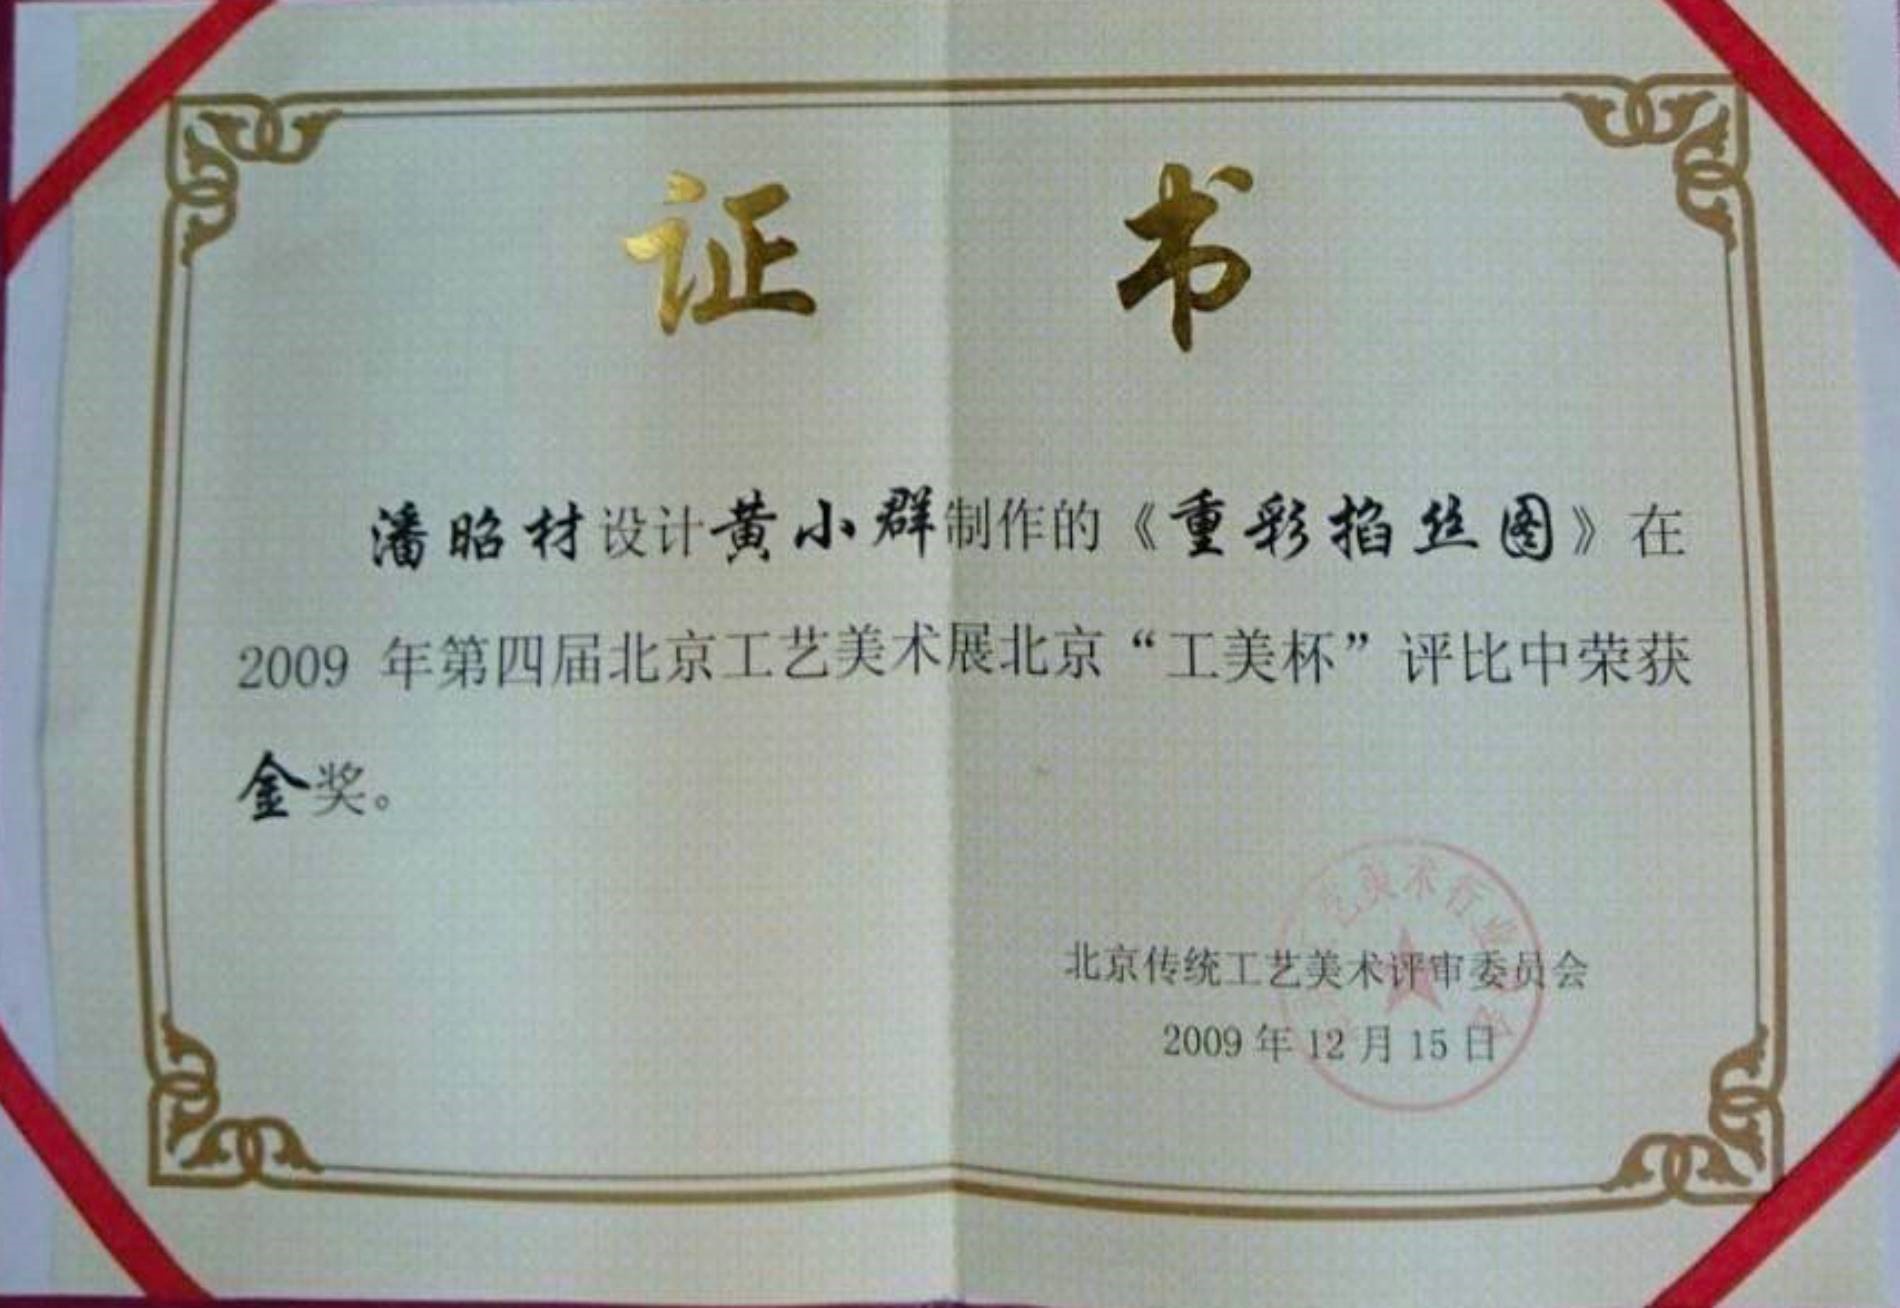 证书
潘昭材设计黄小群制作的《重彩掐丝图》在
2009 年第四届北京工艺美术展北京“工美杯”评比中荣获
金奖。
艺美术行业
北京传统工艺美术评审委员会
2009 年 12 月 15 日